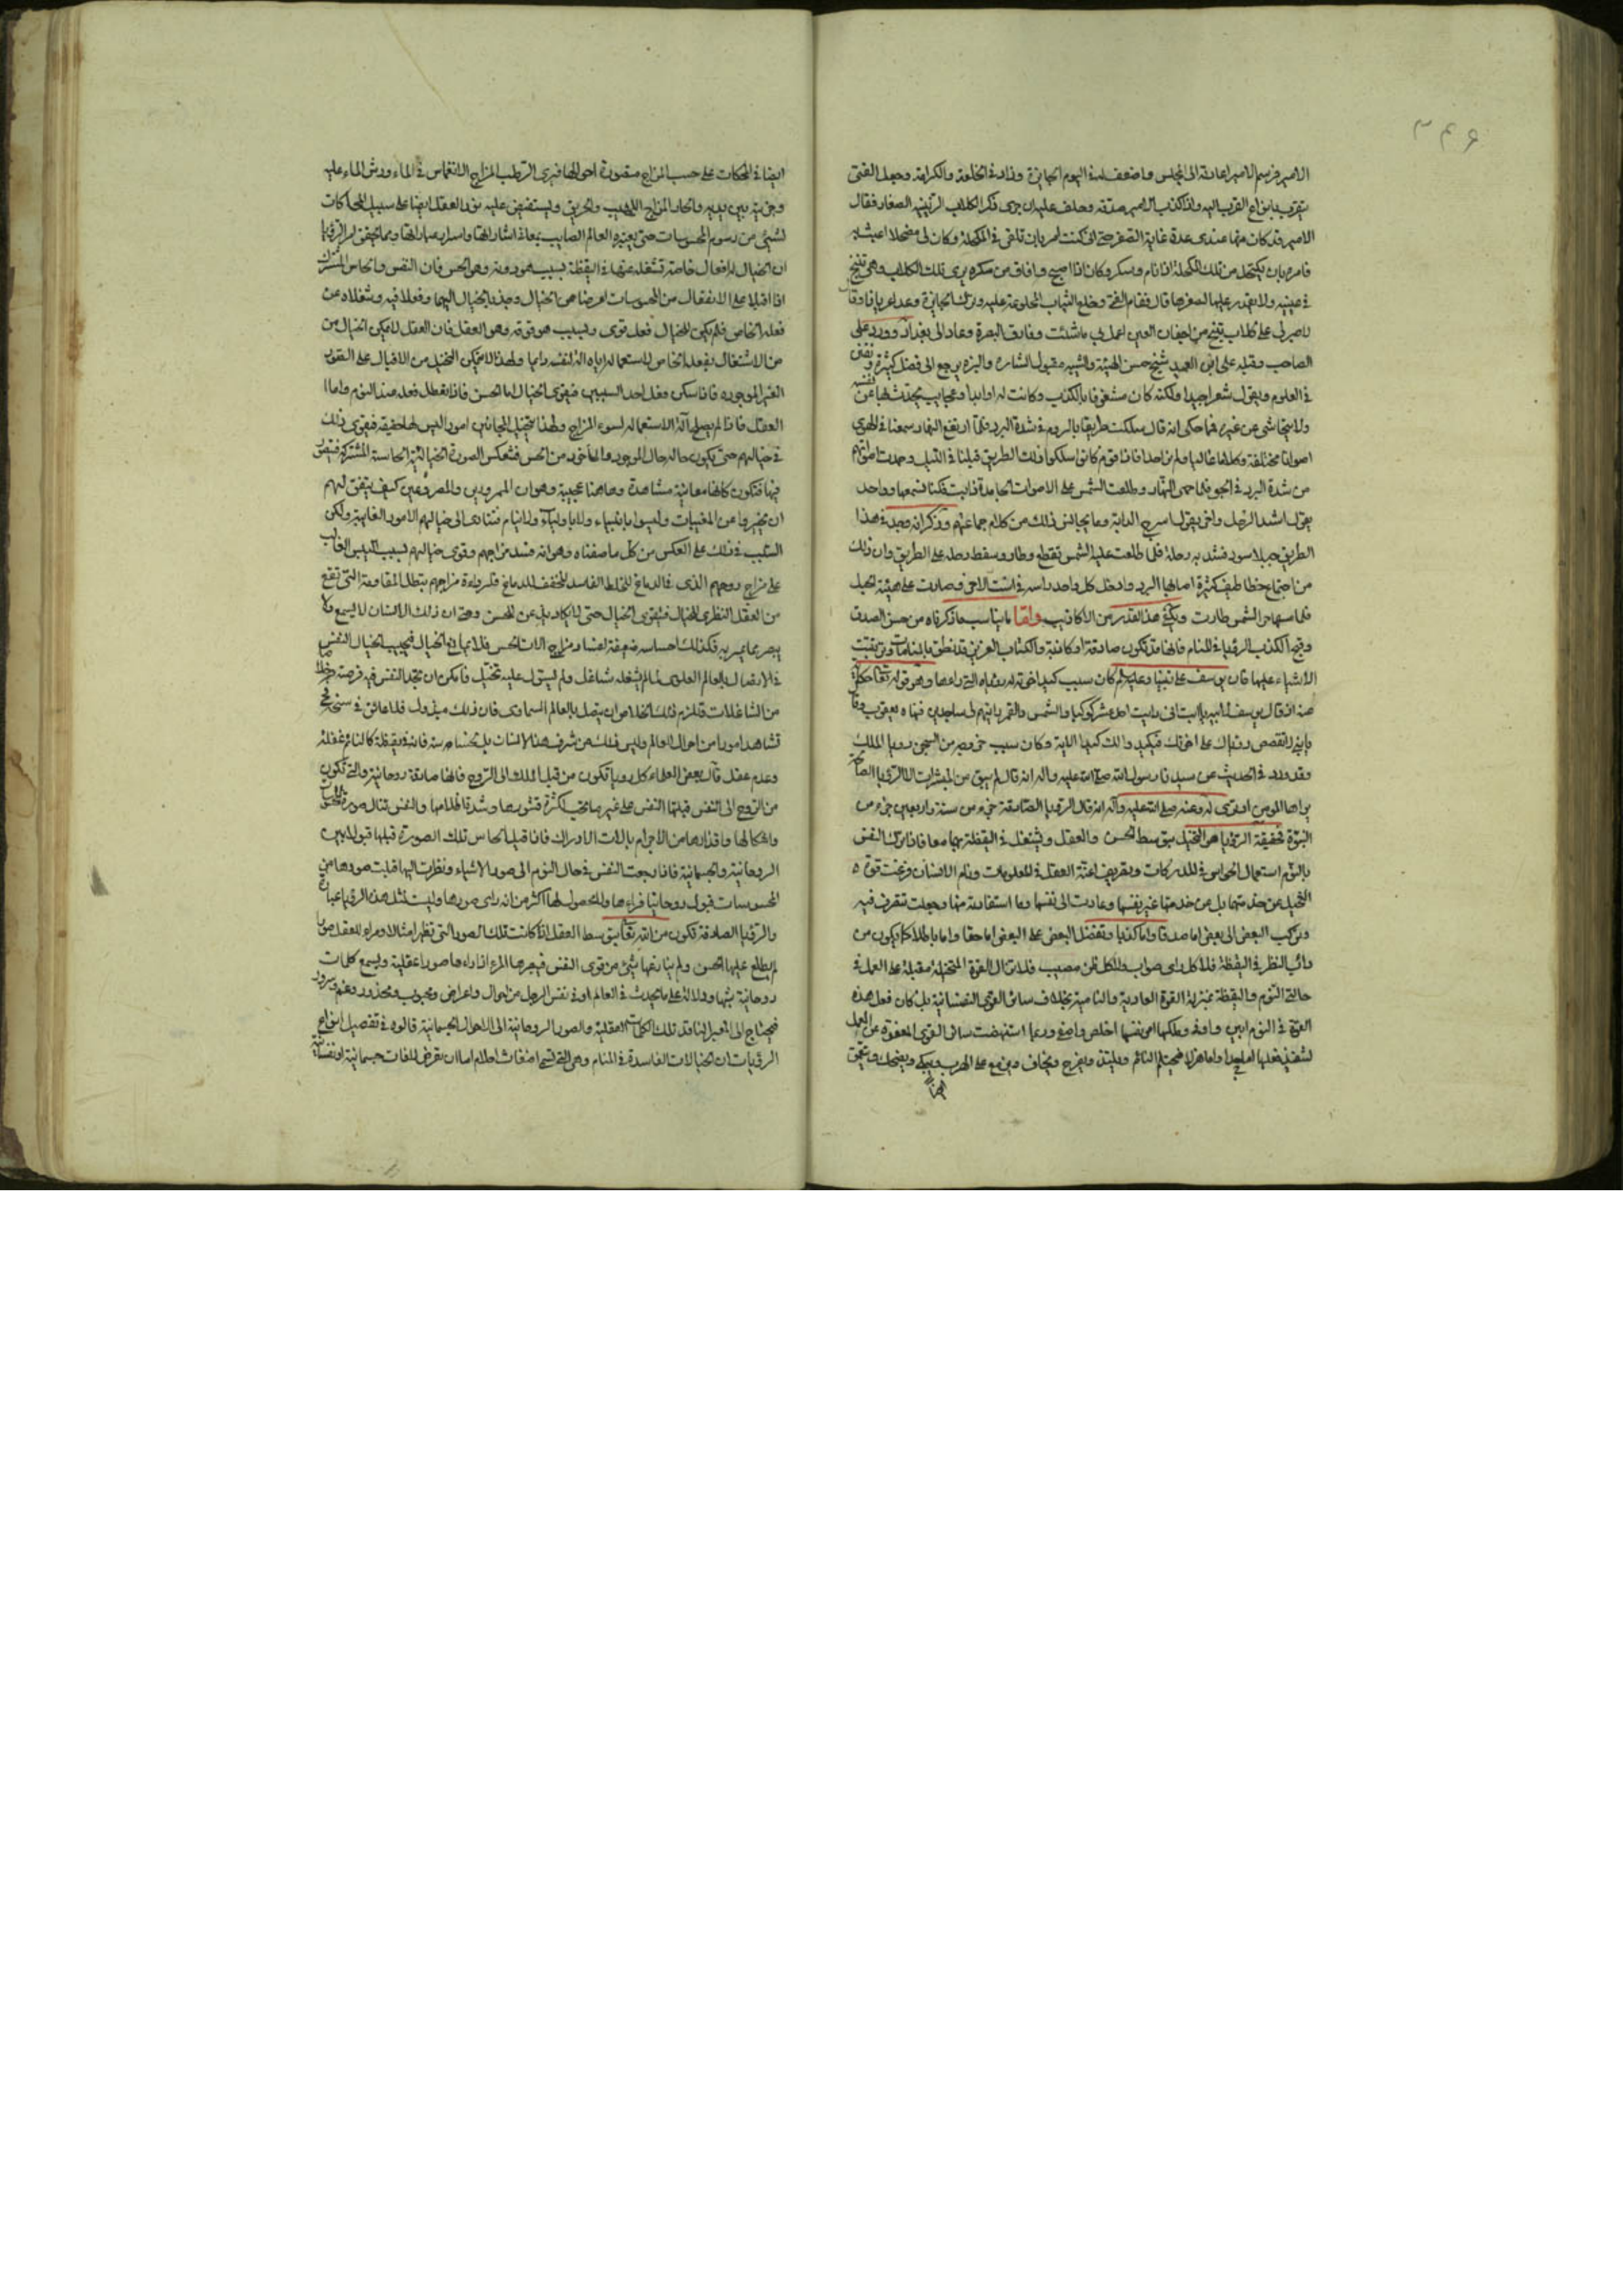 ٣٤٦
الامير فرسم الامير اعادته الى المجلس واضعف له في اليوم الجايزة وزاد في الخلعة والكرامة وجعل الفتى
يتقرب بانواع القرب اليه واذا كذب الامير صدقه وحلف عليه ان جرى ذكر الكلاب الزئينية الصغار فقال
الامير قد كان منها عندي عدة غاية الصغر حتى اني كنت امر بان تلقى في المكحلة وكان لي مضحك اعبث به
فامر بان يكتحل من تلك المكحلة اذا نام وسكر وكان اذا اصبح وافاق من سكره يرى تلك الكلاب وهي تنبح
في عينيه ولا يقدر عليها لصغرها قال فقام الفتى وخلع الثياب المخلوعة عليه وترك الجايزة وعدا عريانا وقال
لا صبر لي على كلاب تنبح من اجفان العين اعمل بي ما شئت وفارق البصرة وعاد الى بغداد وورد على
الصاحب وقيل على ابن العميد شيخ حسن الهيئة والشيبة مقبول الشارة والبزة يرجع الى فضل كثير وتفنن
في العلوم ويقول شعرا جيدا ولكنه كان مشغوفا بالكذب وكانت له اوابد وعجايب يحدث بها عن نفسه
ولا يتحاشى عن غيره فمما حكى انه قال سلكت طريقا بالروم في شدة البرد فلما ارتفع النهار سمعنا في الهوى
اصواتا مختلفة وكلاما عاليا ولم نر احدا فاذا قوم كانوا سلكوا ذلك الطريق قبلنا في الليل وجمدت اصواتهم
من شدة البرد في الجو فلما حمى النهار وطلعت الشمس على الاصوات الجامدة ذابت فكنا نسمعها وواحد
يقول اشدد الرحل واخر يقول اسرج الدابة وما يجانس ذلك من كلام جماعتهم وذكر انه وجد في هذا
الطريق حبلا اسود فشد به رحله فلما طلعت عليه الشمس تقطع وطار وسقط رحله على الطريق وان ذلك
من اجتماع خطاطيف كثيرة اصابها البرد وادخل كل واحد راسه في است الاخر وصارت على هيئة الحبل
فلما مسها حر الشمس طارت ويكفي هذا القدر من الاكاذيب واما ما يناسب ما ذكرناه من حسن الصدق
وقبح الكذب الرؤيا في المنام فانها قد تكون صادقة او كاذبة والكتاب العزيز قد نطق بالمنامات وترتبت
الاشياء عليها فان يوسف على نبينا وعليه السلم كان سبب كيد اخوته له رؤياه التي راها وهو قوله تعالى حكاية
عنه اذ قال يوسف لابيه يا ابت اني رايت احد عشر كوكبا والشمس والقمر رايتهم لي ساجدين فنهاه يعقوب وقال
يا بني لا تقصص رؤياك على اخوتك فيكيدوا لك كيدا الاية وكان سبب خروجه من السجن رؤيا الملك
وقد ورد في الحديث عن سيدنا رسول الله صلى الله عليه واله انه قال لم يبق من المبشرات الا الرؤيا الصالحة
يراها المومن او ترى له وعنه صلى الله عليه وآله انه قال الرؤيا الصادقة جزء من ستة واربعين جزء من
النبوة فحقيقة الرؤيا هو التخيل يتوسط الحس والعقل ويشتغل في اليقظة بهما معا فاذا ترك النفس
بالنوم استعمال الحواس في المدركات وتصريف اعنة العقل في المعلومات ونام الانسان وتخلت قوة
التخيل عن خدمتهما بل من خدمة غير نفسها وعادت الى نفسها وما استفادته منها وجعلت تتصرف فيه
وتركب البعض الى بعض اما صدقا واما كذبا وتفضل البعض على البعض اما حقا واما باطلا كما يكون من
دائب النظر في اليقظة فلا كل راى صواب ولا كل ظن مصيب فلا تزال القوة المتخيلة مقبلة على العمل في
حالتي النوم واليقظة بمنزلة القوة الغاذية والنامية بخلاف سائر القوى النفسانية بل كان فعل هذه
القوة في النوم ابين واصفى وملكها امر نفسها اخلص واضح وربما استنهضت سائر القوى المعوقة عن العمل
لتنفيذ فعلها اما جدا واما هزلا فيحتلم النائم ويلتذ ويفرح ويخاف ويزمع على الهرب ويبكي ويضحك ويتحقق
ايضا
ايضا في المحركات على حسب المزاج مقصورة اخرى الخيال فيرى الرطب المزاج الانغماس في الماء ورش الماء عليه
وجريه بين يديه والحار المزاج اللهيب والحريق ويستفيض عليه نور العقل ايضا على سبيل المحاكات
ان الخيال له افعال خاصة تشغله عنها في اليقظة بسبب هو دونه وهو الحس فان النفس والحاس المشترك
اذا اقبلا على الانفعال من المحسوسات اعرضا عن الخيال وجذبا الخيال اليهما وفعلا فيه وشغلاه عن
فعله الخاص فلم يكن للخيال فعل قوى وبسبب هو فوقه وهو العقل فان العقل لا يمكن الخيال من
من الاشتغال بفعله الخاص لاستعماله اياه الة لنفسه دايما ولهذا لا يتمكن التخيل من الاقبال على الصور
الغير الموجوده فاذا سكن فعل احد السببين فيقوى الخيال اما الحس فاذا تعطل فعله عند النوم واما
العقل فاذا لم يصلح آلة لاستعماله لسوء المزاج ولهذا يتخيل المجانين امورا ليس لها حقيقة فيقوى ذلك
في خيالهم حتى يكون حاله حال الموجود والماخوذ من الحس فتنعكس الصورة الخيالية الى الحاسة المشتركة فتتصور
فيها فتكون كانها معاينة مشاهدة وهاهنا عجيبة وهو ان الممرورين والمصروعين كيف يتفق لهم
ان يخبروا عن المغيبات وليسوا بانبياء ولا باولياء ولا انيام فتتادى الى خيالهم الامور الغايبة ولكن
السبب في ذلك على العكس من كل ما صفناه وهو انه فسد مزاجهم وقوى خيالهم بسبب اليبس الغالب
على مزاج روحهم الذي في الدماغ للخلط الفاسد المجفف للدماغ فلرداءة مزاجهم بتطل المقاومة التي تقع
من العقل النظرى للخيال فيقوى الخيال حتى لا يكاد يلى عن الحس وحتى ان ذلك الانسان لا يسمع ولا
يبصر بما يمر به فكذلك احساسه ضعيفة لفساد مزاج الات الحس فلا يمانع الخيال فيجيب الخيال النفس
في الاتصال بالعالم العلوى لما لم يشغله شاغل ولم يستول عليه تخيل فامكن ان تجد النفس فيه فرصة وخلاصا
من الشاغلات فيلزم ذلك الخلاص ان يتصل بالعالم السماوى فان ذلك مبذول فلا عائق في سنخه
فتشاهد امورا من احوال العالم وليس ذلك من شرف هذا الانسان بل لخساسته فانه في يقظته كالنائم غفلة
وعدم عقل قال بعض العلماء كل رويا تكون من قبل الملك الى الروح فانها صادقة روحانية والتي تكون
من الروح الى النفس قبلتها النفس على غير ما يجب لكثرة قشورها وشدة اظلامها والنفس تنال صورة المحسوسات
واشكالها واقدارها من الاجرام بالات الادراك فاذا قبل الحاس تلك الصورة قبلها قبولا بين
الروحانية والجسمانية فاذا رجعت النفس في حال النوم الى صور الاشياء ونظرت اليها قبلت صورها من
المحسوسات قبولا روحانيا فراءها ولا محصول لها اكثر من انه راى صورها وليست لمثل هذه الرؤيا عبارة
والرؤيا الصادقة تكون من الله تعالى بتوسط العقل اذا كانت تلك الصور التي تظهر امثالا ومراء للعقل صورا
لم يطلع عليها الحس ولم ينازعها شئ من قوى النفس فيعبرها المرء اذا راءها صورا عقلية ويسمع كلمات
روحانية ينبها ودلالة على ما يحدث في العالم او في نفس الرجل من احوال واعراض ومحبوب ومحذور وغم وسرور
فيحتاج الى المعبر لينا قد تلك الكلمات العقلية والصور الروحانية الى الاحوال الجسمانية قالوا في تفصيل انواع
الرؤيات ان الخيالات الفاسدة في المنام وهي التي تسمى اضغاث احلام اما ان تعرض لافات جسمانية او نفسانية